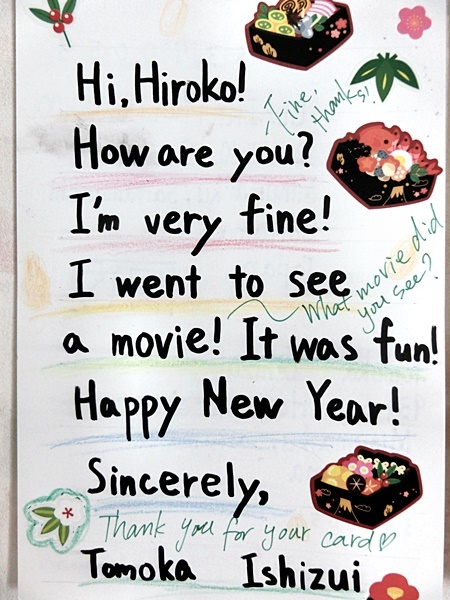 Hi, Hiroko!
Fine, thanks!
How are you?
I'm very fine!
I went to see
What movie did you see?
a movie! It was fun!
Happy New Year!
Sincerely,
Thank you for your card♡
Tomoka Ishizui